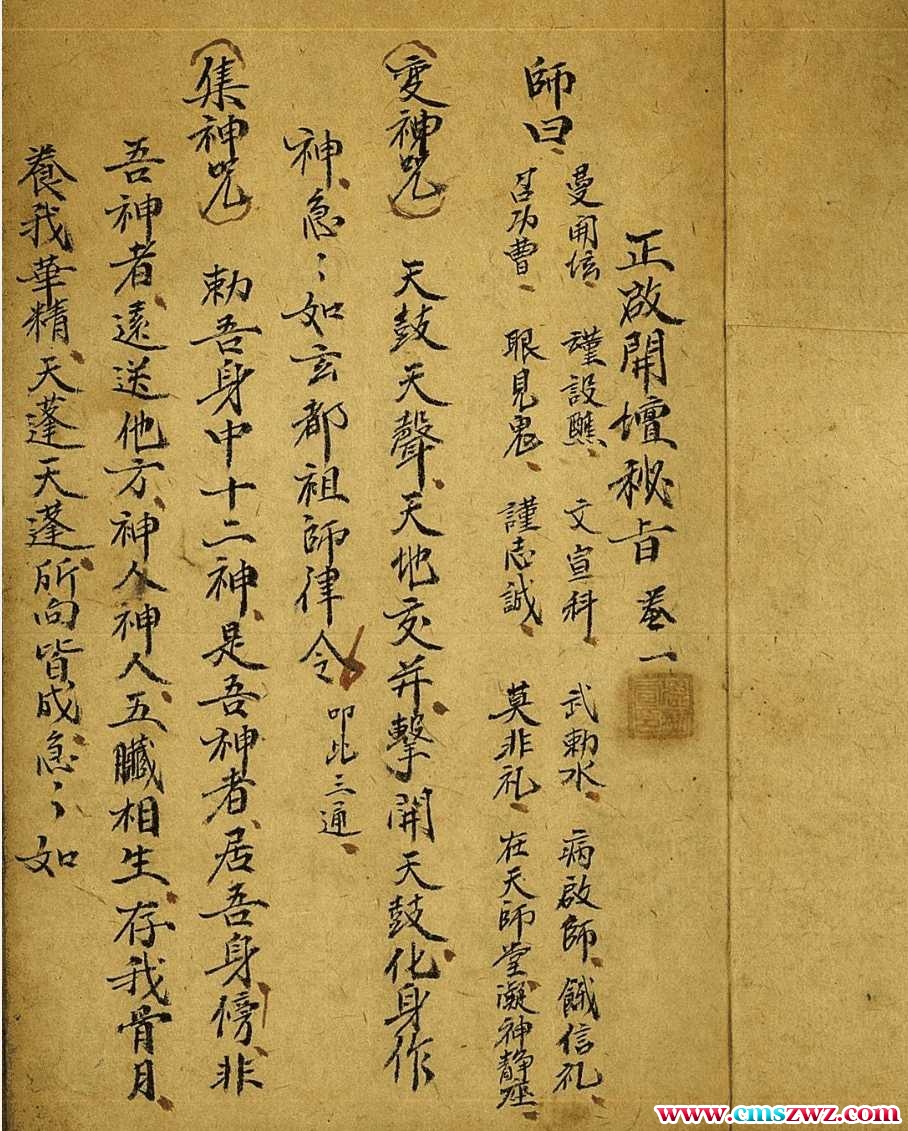 正啟開壇秘旨 卷一
師曰、
曼用信、謹設醮、文宣科、武勅水、病啟師、餓信礼、
甚功曹、眼見鬼、謹志誠、莫非礼、在天師堂凝神静座、
(变神咒) 天鼓天聲、天地交并、擊開天鼓、化身作
神、急〻如玄都祖師律令 叩比三通、
(集神咒) 勅吾身中十二神、是吾神者、居吾身傍、非
吾神者、遠送他方、神人神人、五臟相生、存我骨月、
養我華精、天蓬天蓬、所向皆成、急〻如
www.cmszwz.com